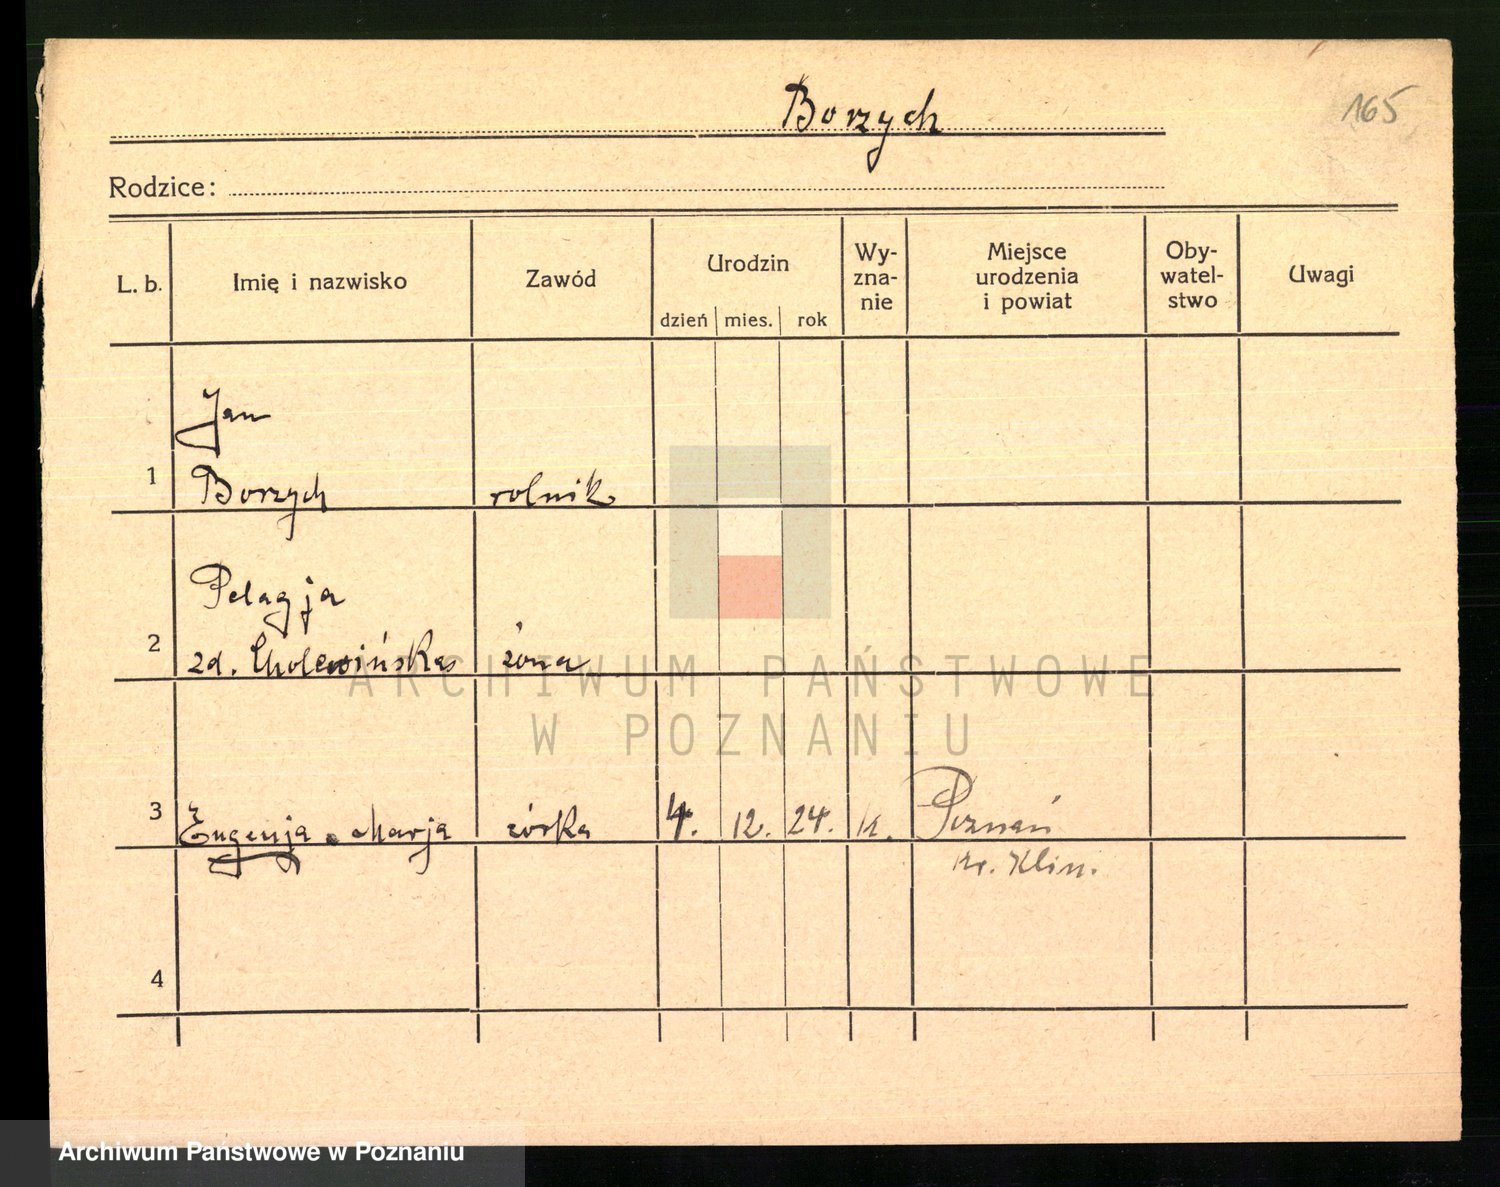 Borzych
165
Rodzice:
L. b.
Imię i nazwisko
Zawód
Urodzin
dzień mies. rok
Wy-
zna-
nie
Miejsce
urodzenia
i powiat
Oby-
watel-
stwo
Uwagi
Jan
1 Borzych rolnik
Pelagja
2 zd. Cholewińska żona
3 Eugenja Marja córka 4. 12. 24. k. Poznań
kr. Klin.
4
ARCHIWUM PAŃSTWOWE
W POZNANIU
Archiwum Państwowe w Poznaniu